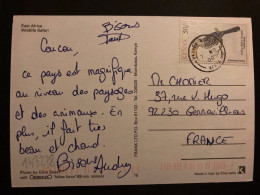 East Africa
Wildlife Safari
Bisous
Coucou,
ce pays est magnifique
au niveau des paysages
et des animaux. En
plus, il fait très
beau et chaud.
Bisous Audrey
Photo by
KENYA
37, rue V. Hugo
92230 Gennevilliers
FRANCE